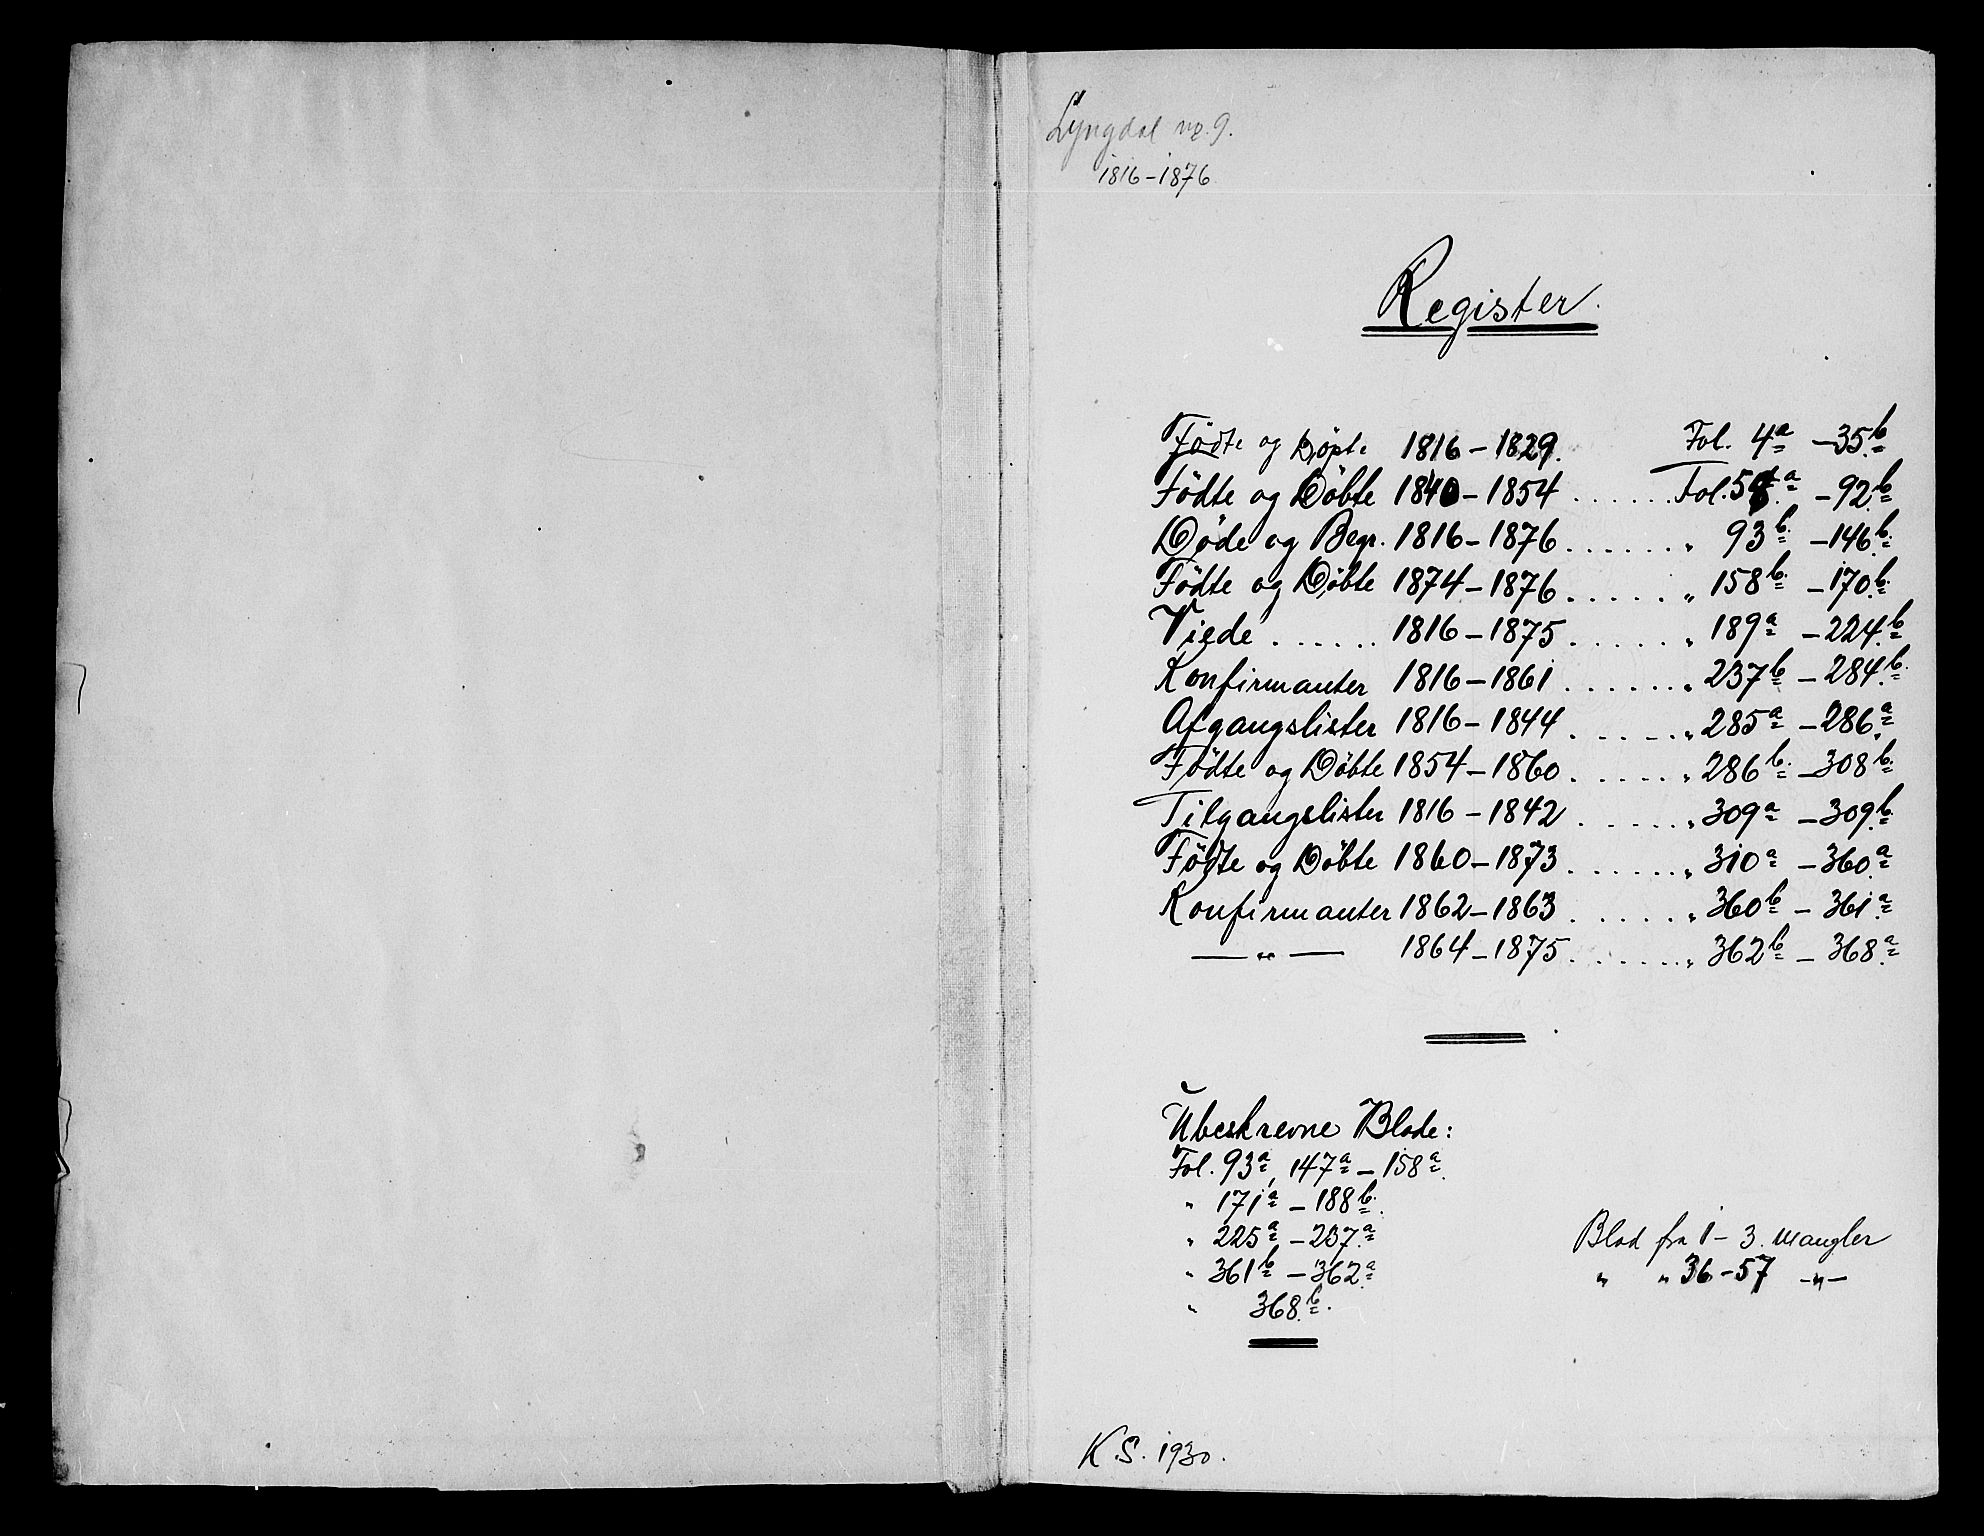 Lyngdal nr. 9.
1816-1876
Register.
Födte og Döpte 1816-1829. Fol. 4a -35b
Födte og Döbte 1840-1854 ...... Fol. a -92b
Döde og Begr. 1816-1876 ...... " 93b -146b
Födte og Döbte 1874-1876 ...... " 158b -170b
Viede ...... 1816-1875 ...... " 189a -224b
Konfirmanter 1816-1861 ...... " 237b -284b
Afgangslister 1816-1844 ...... " 285a -286a
Födte og Döbte 1854-1860 ...... " 286b -308b
Tilgangslister 1816-1842 ...... " 309a -309b
Födte og Döbte 1860-1873 ...... " 310a -360a
Konfirmanter 1862-1863 ...... " 360b - 361a
—"— 1864-1875 ...... " 362b - 368a
Ubeskrevne Blade:
Fol. 93a, 147a - 158a
" 171a - 188b
" 225a - 237a
" 361b - 362a
" 368b.
Blad fra 1-3. mangler
" " 36-57 -"-
K.S. 1930.